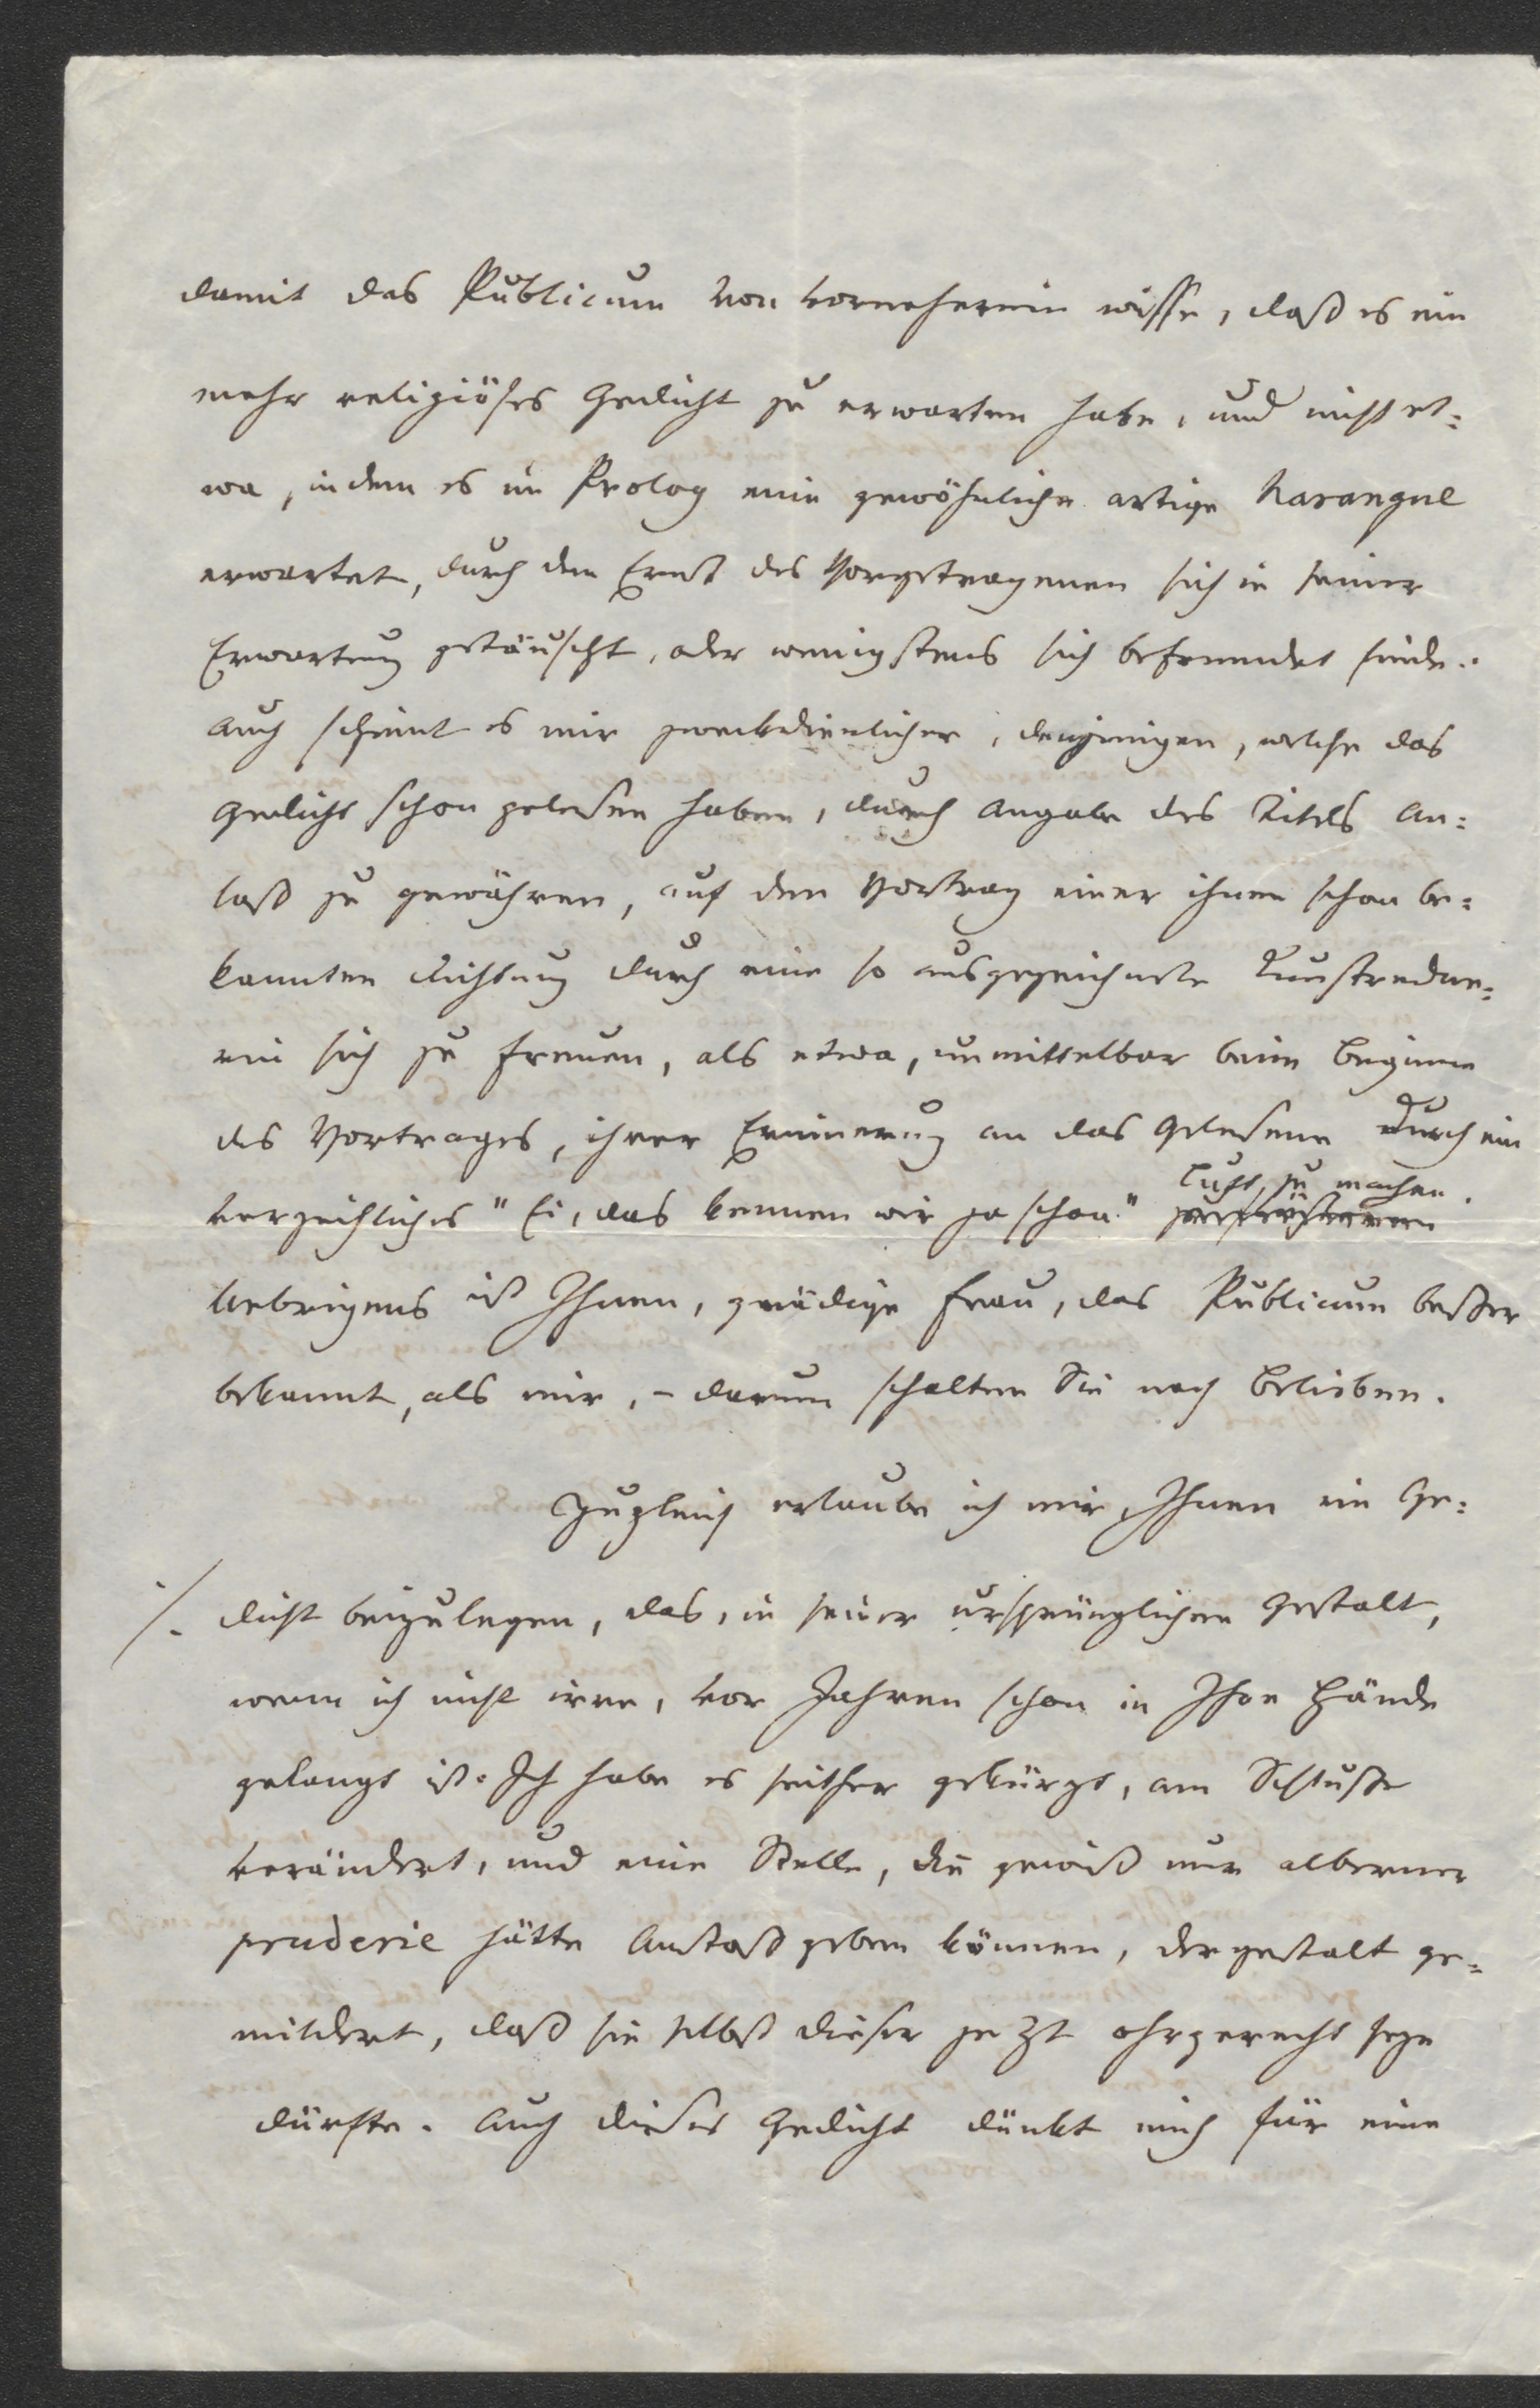 damit das Publicum von vorneherein wisse, daß es ein
mehr religiöses Gedicht zu erwarten habe, und nicht et=
wa, indem es im Prolog eine gewöhnliche artige harangue
erwartet, durch den Ernst des Vorgetragenen sich in seiner
Erwartung getäuscht, oder wenigstens sich befremdet finde.
Auch scheint es mir zweckdienlicher, denjenigen, welche das
Gedicht schon gelesen haben, durch Angabe des Titels An=
laß zu gewähren, auf den Vortrag einer ihnen schon be=
kannten Dichtung durch eine so ausgezeichnete Kunstredne=
rin sich zu freuen, als etwa, unmittelbar beim Beginne
des Vortrages, ihrer Erinnerung an das Gelesene durch ein
Luft zu machen.
verzeihliches "Ei, das kennen wir ja schon"
Uebrigens ist Ihnen, gnädige Frau, das Publicum besser
bekannt, als mir, – darum schalten Sie nach Belieben.
Zugleich erlaube ich mir, Ihnen ein Ge=
./. dicht beizulegen, das, in seiner ursprünglichen Gestalt,
wenn ich nicht irre, vor Jahren schon in Ihre Hände
gelangt ist. Ich habe es seither gekürzt, am Schluße
verändert, und eine Stelle, die gewiß nur alberner
pruderie hätte Anstoß geben können, dergestalt ge=
mildert, daß sie selbst dieser jetzt ohrgerecht seyn
dürfte. Auch dieses Gedicht dünkt mich für eine